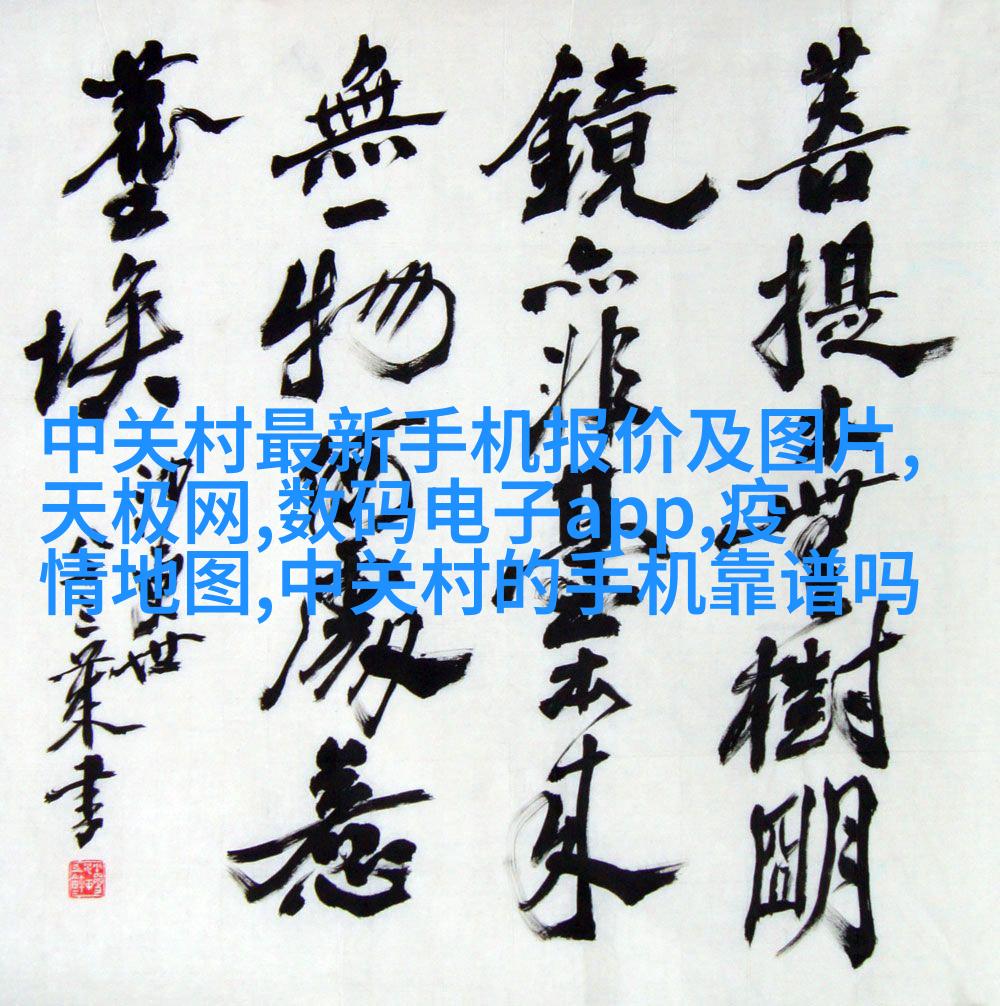 菩提本無樹明
鏡亦非臺本来
無一物何處惹
塵埃
中关村最新手机报价及图片,
天极网,数码电子app,疫
情地图,中关村的手机靠谱吗